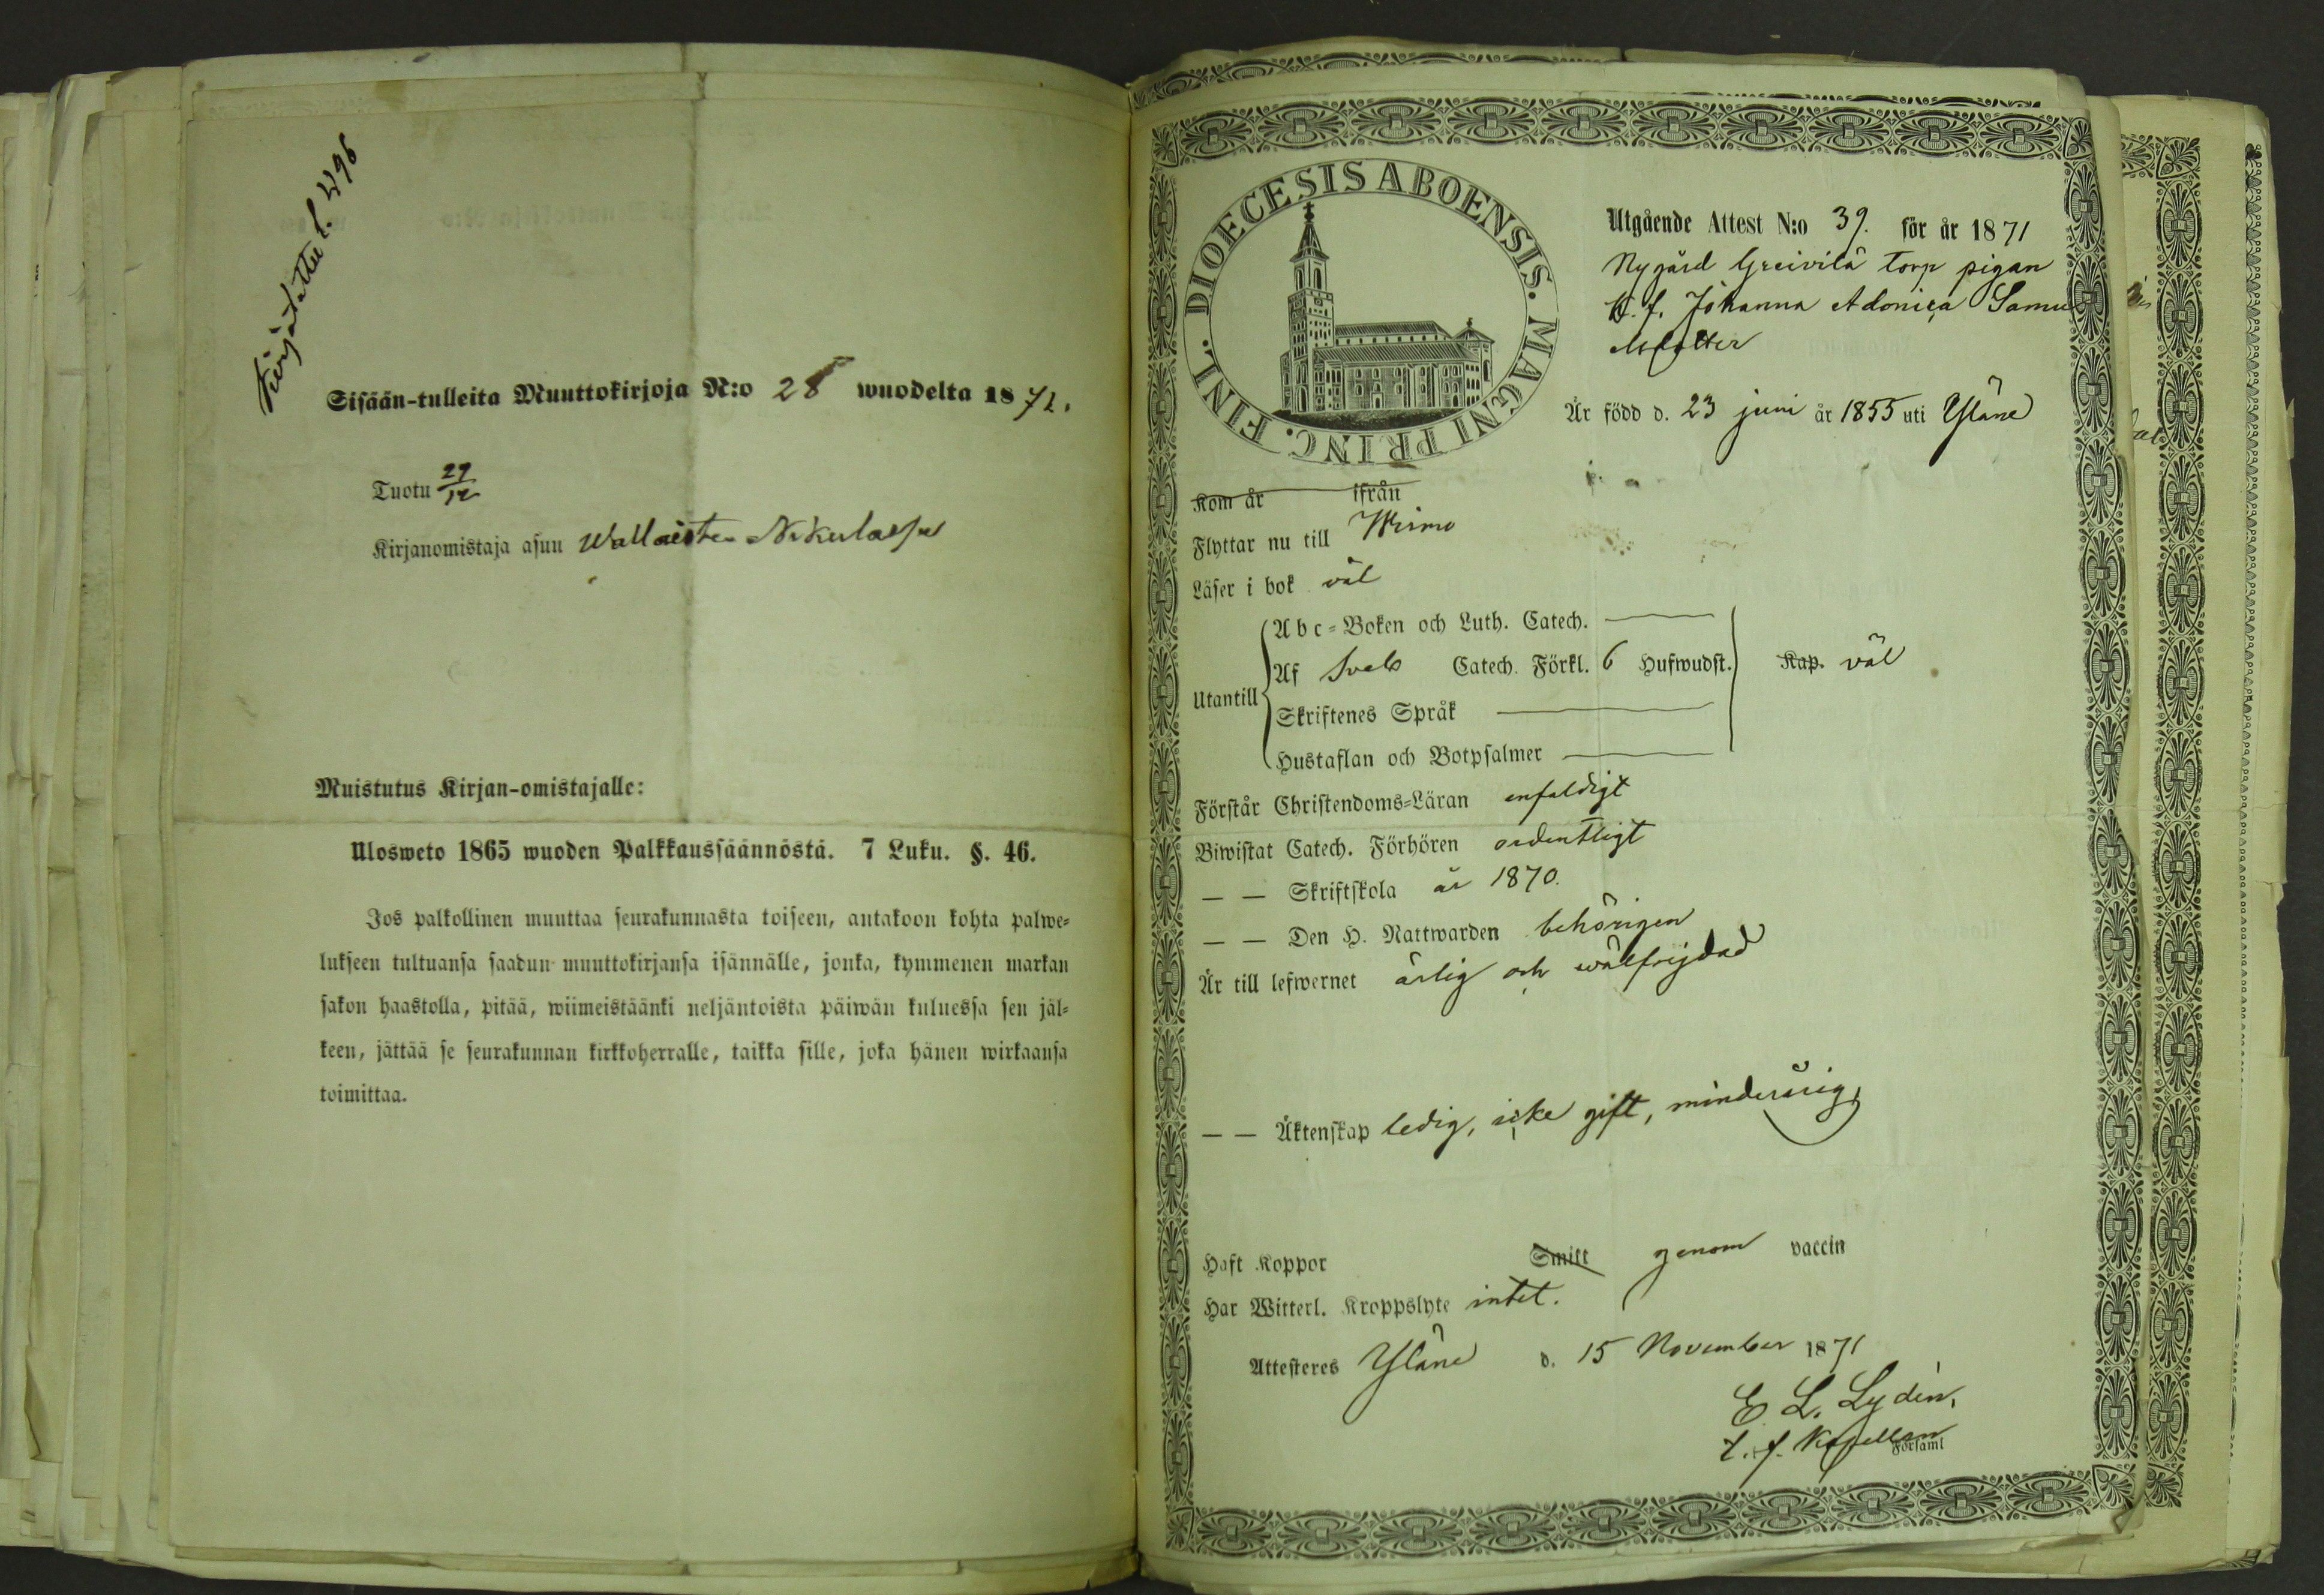 Kirjotettu l. 496
Sisään-tulleita Muuttokirjoja N:o 28 wuodelta 1871.
Tuotu 27/12
Kirjanomistaja asuu Wallaisten Nikulassa
Muistutus Kirjan-omistajalle:
Ulosweto 1865 wuoden Palkkaussäännöstä. 7 Luku. §. 46.
Jos palkollinen muuttaa seurakunnasta toiseen, antakoon kohta palwe-
lukseen tultuansa saadun muuttokirjansa isännälle, jonka, kymmenen markan
sakon haastolla, pitää, wiimeistäänki neljäntoista päiwän kuluessa sen jäl-
keen, jättää se seurakunnan kirkkoherralle, taikka sille, joka hänen wirkaansa
toimittaa.
DIOECESIS ABOENSIS. MAGNI PRINC. FINL.
Utgående Attest N:o 39. för år 1871
Nygård Greivilä torp pigan
Johanna Adonica Samu
elsdotter
Är född d. 23 juni år 1855 uti Yläne
Kom år ifrån
Flyttar nu till Wirmo
Läser i bok väl
Utantill
Abc-Boken och Luth. Catech.
Af Sveb Catech. Förkl. 6 Hufwudst. Kap. väl
Skriftenes Språk
Hustaflan och Botpsalmer
Förstår Christendoms-Läran enfaldigt
Biwistat Catech. Förhören ordentligt
— — Skriftskola år 1870.
— — Den H. Nattwarden behörigen
Är till lefwernet ärlig och wälfrejdad
— — Äktenskap ledig, icke gift, minderårig,
Haft Koppor Smitt genom vaccin
Har Witterl. Kroppslyte intet.
Attesteres Yläne d. 15 November 1871
E. L. Lydén,
t. f. Kapellan
Församl